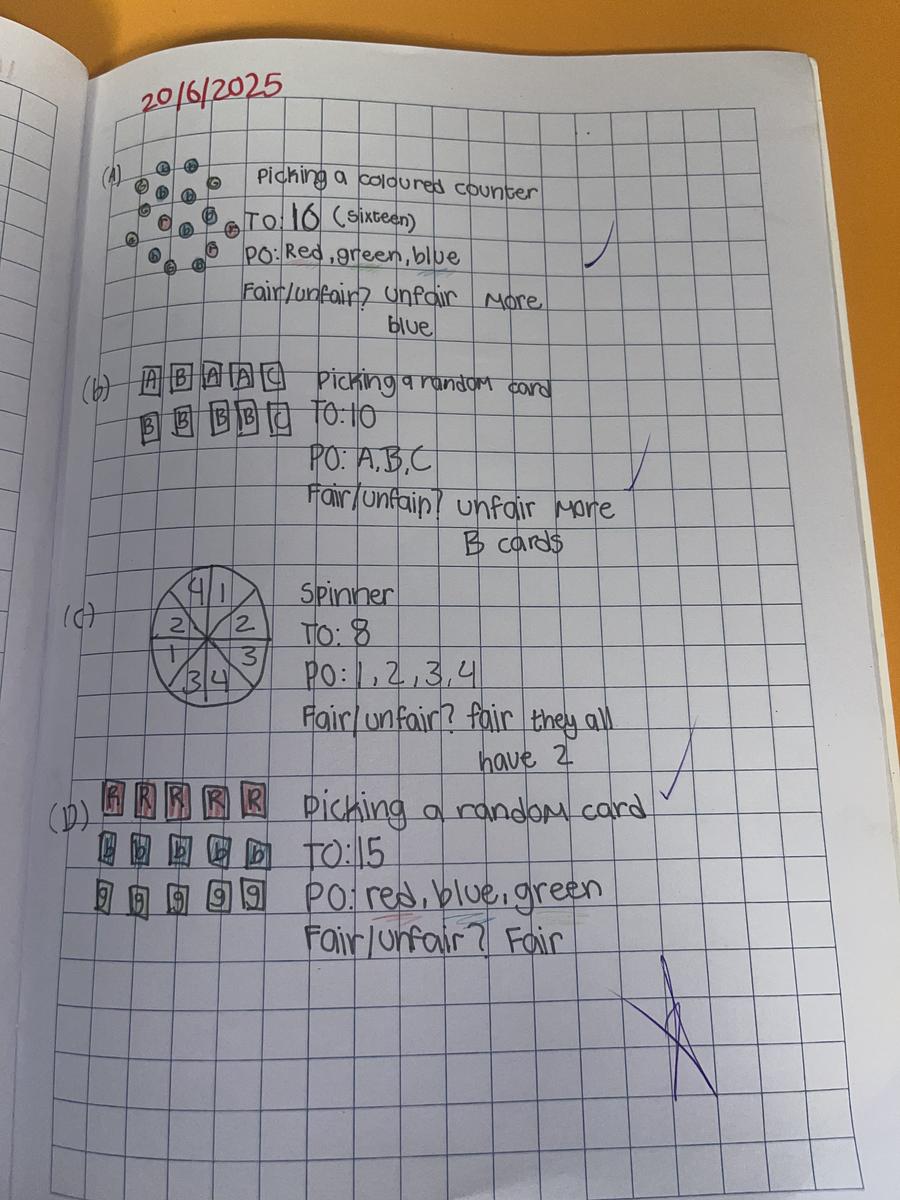 20/6/2025
(A) Picking a coloured counter
TO: 16 (sixteen)
PO: Red, green, blue
Fair/unfair? unfair More
blue
(b) A B A A C Picking a random card
B B B B C TO: 10
PO: A, B, C
Fair/unfair? unfair More
B cards
(c) 4 1 Spinner
2 2 TO: 8
1 3 PO: 1, 2, 3, 4
3 4
Fair/unfair? fair they all
have 2
(D) R R R R R Picking a random card
b b b b b TO: 15
g g g g g PO: red, blue, green
Fair/unfair? Fair